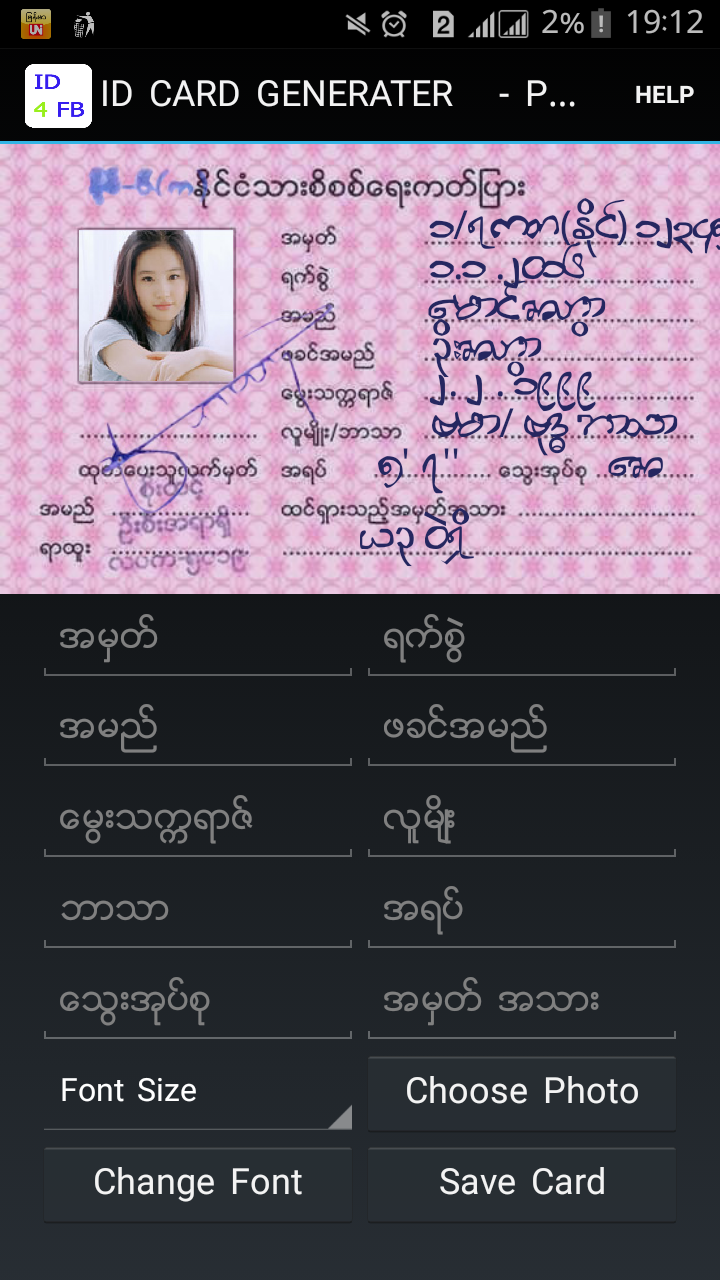 မြန်မာ
UN
2 2% 19:12
ID
4 FB
ID CARD GENERATER - P... HELP
နိုင်ငံသားစိစစ်ရေးကတ်ပြား
အမှတ် ၁/ရကာ(နိုင်)၁၂၃၄
ရက်စွဲ
အမည် မောင်အလွှာ
ဖခင်အမည် ဦးအလွှာ
မွေးသက္ကရာဇ် ၂.၂.၁၉၉၉
လူမျိုး/ဘာသာ ဗမာ/ဗုဒ္ဓဘာသာ
ထုတ်ပေးသူလက်မှတ် အရပ် ၅'၇" သွေးအုပ်စု အေ
အမည် ထင်ရှားသည့်အမှတ်အသား
ရာထူး
အမှတ် ရက်စွဲ
အမည် ဖခင်အမည်
မွေးသက္ကရာဇ် လူမျိုး
ဘာသာ အရပ်
သွေးအုပ်စု အမှတ် အသား
Font Size Choose Photo
Change Font Save Card